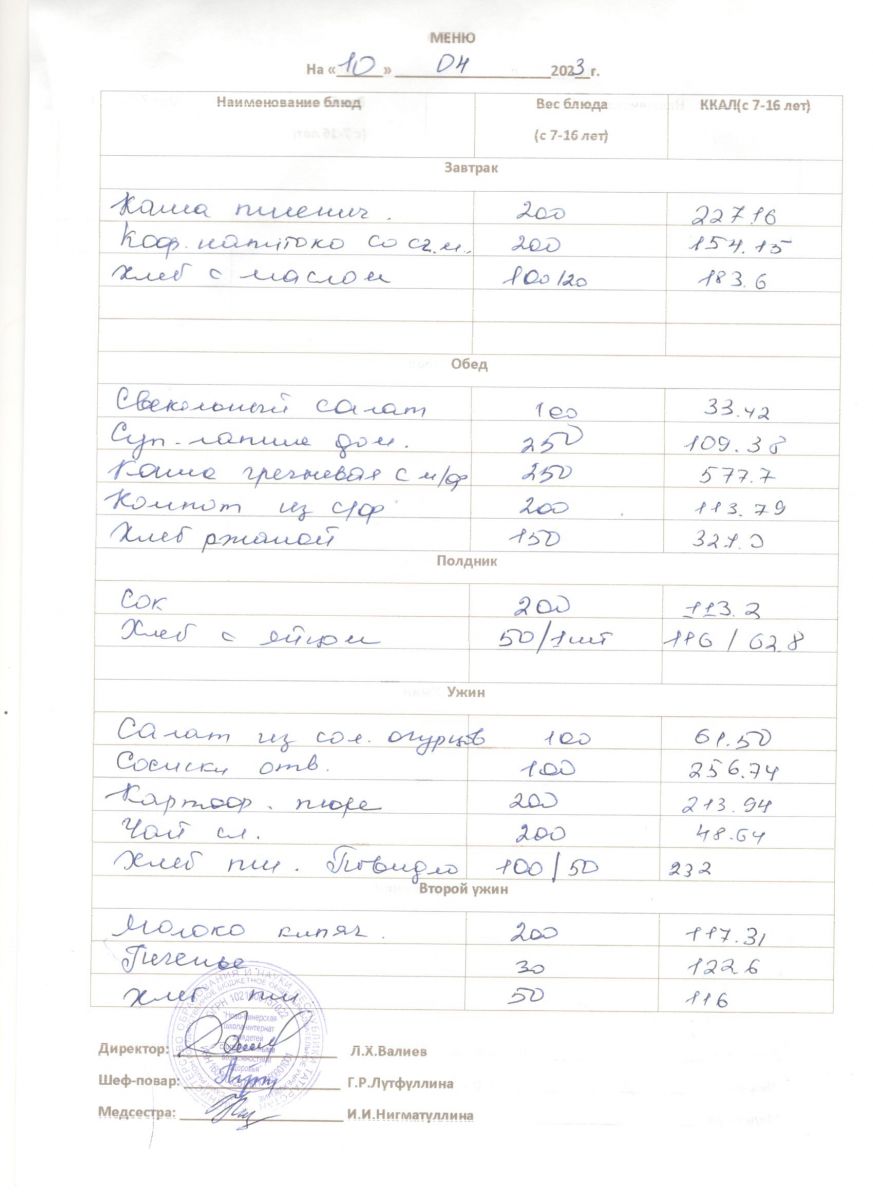 МЕНЮ
На «10» 04 2023г.
Наименование блюд Вес блюда (с 7-16 лет) ККАЛ(с 7-16 лет)
Завтрак
Каша пшенич. 200 227.16
Коф. напитоко со сг.м. 200 154.15
Хлеб с маслом 100/20 183.6
Обед
Свекольный салат 100 33.42
Суп-лапша дом. 250 109.38
Каша гречневая с м/ф 250 577.7
Компот из с/ф 200 113.79
Хлеб ржаной 150 321.0
Полдник
Сок 200 113.2
Хлеб с яйцом 50/1шт 116 / 62.8
Ужин
Салат из сол. огурцов 100 61.50
Сосиски отв. 100 256.74
Картоф. пюре 200 213.94
Чай сл. 200 48.64
Хлеб пш. Повидло 100/50 232
Второй ужин
Молоко кипяч. 200 117.31
Печенье 30 122.6
Хлеб пш 50 116
Директор: Л.Х.Валиев
Шеф-повар: Г.Р.Лутфуллина
Медсестра: И.И.Нигматуллина